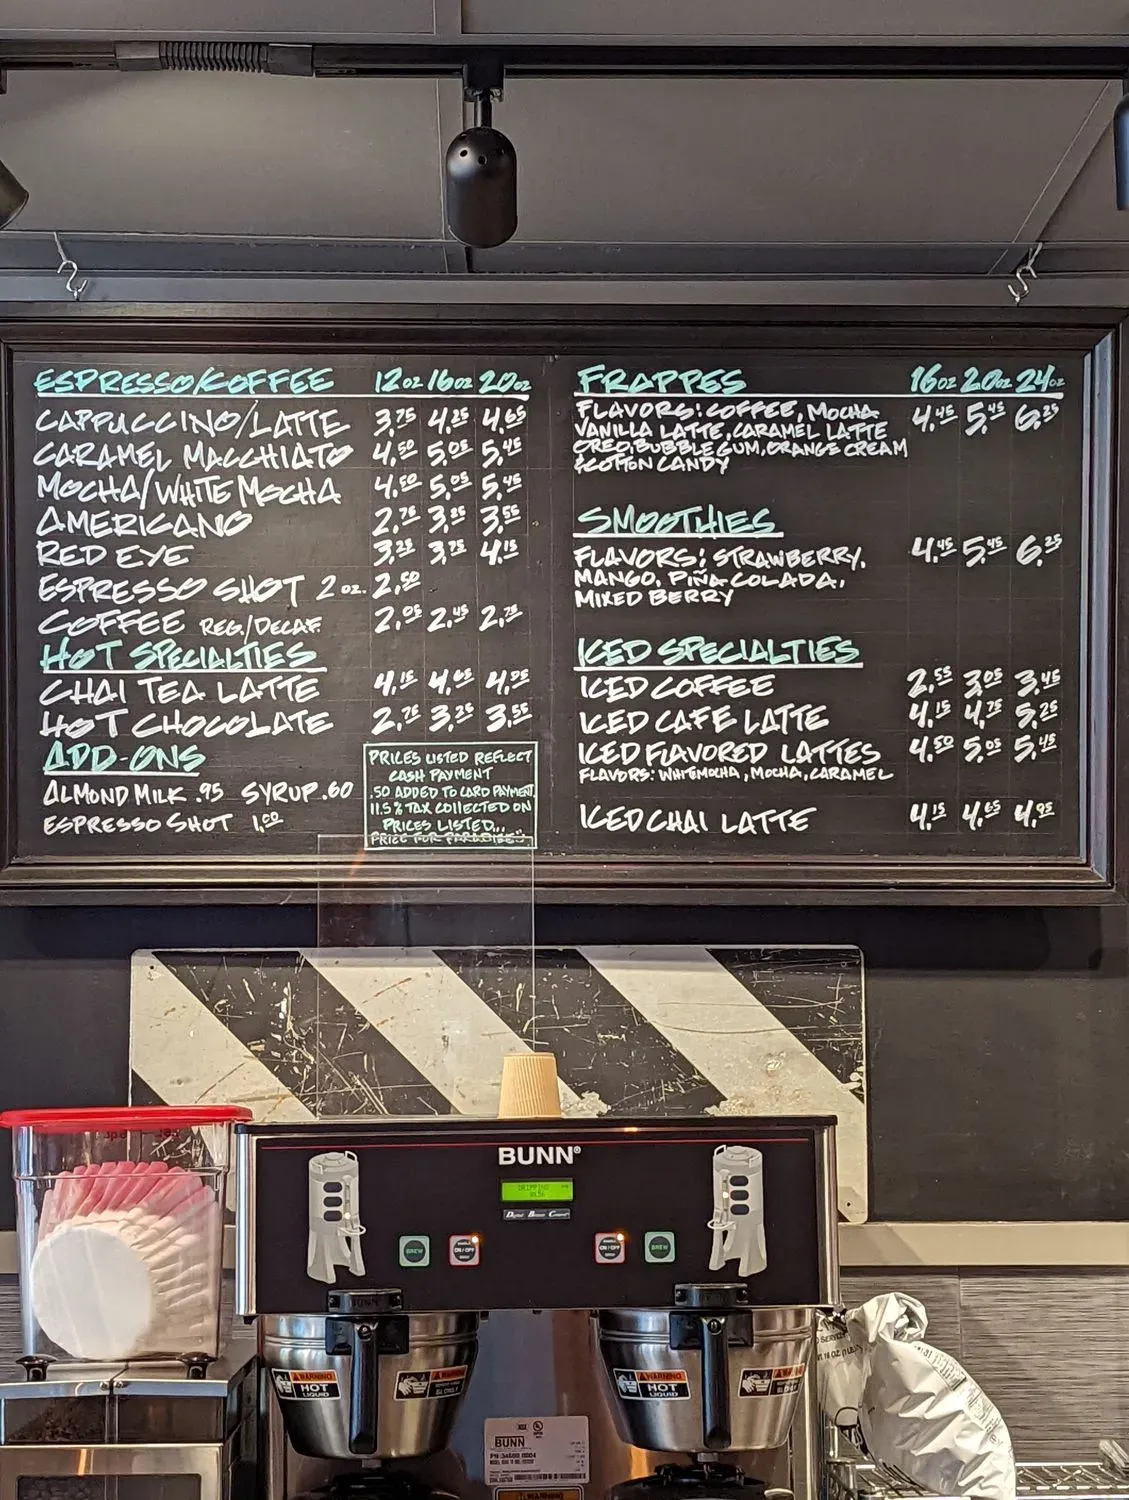 ESPRESSO/COFFEE 12oz 16oz 20oz
CAPPUCCINO/LATTE 3.75 4.25 4.65
CARAMEL MACCHIATO 4.50 5.05 5.45
MOCHA/WHITE MOCHA 4.50 5.05 5.45
AMERICANO 2.75 3.25 3.55
RED EYE 3.25 3.75 4.15
ESPRESSO SHOT 2 oz. 2.50
COFFEE REG./DECAF. 2.05 2.45 2.75
HOT SPECIALTIES
CHAI TEA LATTE 4.15 4.65 4.95
HOT CHOCOLATE 2.75 3.25 3.55
ADD-ONS
ALMOND MILK .95 SYRUP .60
ESPRESSO SHOT 1.00
PRICES LISTED REFLECT
CASH PAYMENT
.50 ADDED TO CARD PAYMENT
11.5% TAX COLLECTED ON
PRICES LISTED...
PRICE FOR PARADISE..
FRAPPES 16oz 20oz 24oz
FLAVORS: COFFEE, MOCHA 4.45 5.45 6.25
VANILLA LATTE, CARAMEL LATTE
OREO, BUBBLE GUM, ORANGE CREAM
& COTTON CANDY
SMOOTHIES
FLAVORS: STRAWBERRY, 4.45 5.45 6.25
MANGO, PIÑA COLADA,
MIXED BERRY
ICED SPECIALTIES
ICED COFFEE 2.55 3.05 3.45
ICED CAFE LATTE 4.15 4.75 5.25
ICED FLAVORED LATTES 4.50 5.05 5.45
FLAVORS: WHITE MOCHA, MOCHA, CARAMEL
ICED CHAI LATTE 4.15 4.65 4.95
BUNN®
BREW
ON/OFF
ON/OFF
BREW
BUNN
WARNING
HOT
LIQUID
WARNING
WARNING
HOT
LIQUID
WARNING
BUNN
WARNING